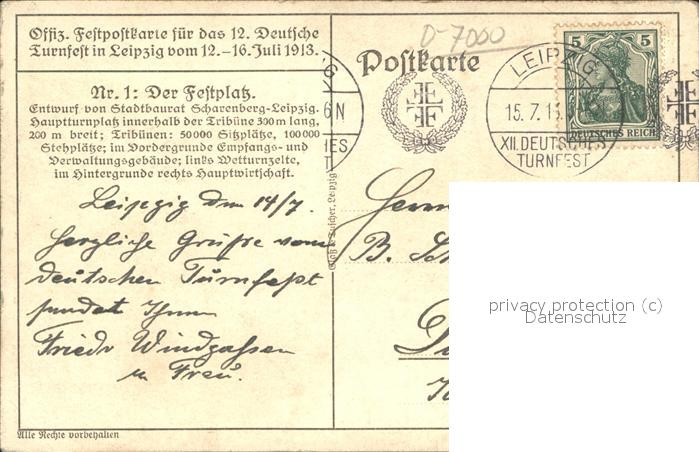 Offiz. Festpostkarte für das 12. Deutsche
Turnfest in Leipzig vom 12.–16. Juli 1913.
Nr. 1: Der Festplatz.
Entwurf von Stadtbaurat Scharenberg-Leipzig.
Hauptturnplatz innerhalb der Tribüne 300 m lang,
200 m breit; Tribünen: 50000 Sitzplätze, 100000
Stehplätze; im Vordergrunde Empfangs- und
Verwaltungsgebäude; links Wetturnzelte,
im Hintergrunde rechts Hauptwirtschaft.
Leipzig den 14/7.
herzliche Grüße vom
deutschen Turnfest
sendet Ihnen
Friedr Windgassen
u Frau.
Alle Rechte vorbehalten
D-7000
Postkarte
LEIPZIG
15. 7. 13
XII. DEUTSCHES
TURNFEST
5 5
DEUTSCHES REICH
6N
Herrn
B.
privacy protection (c)
Datenschutz